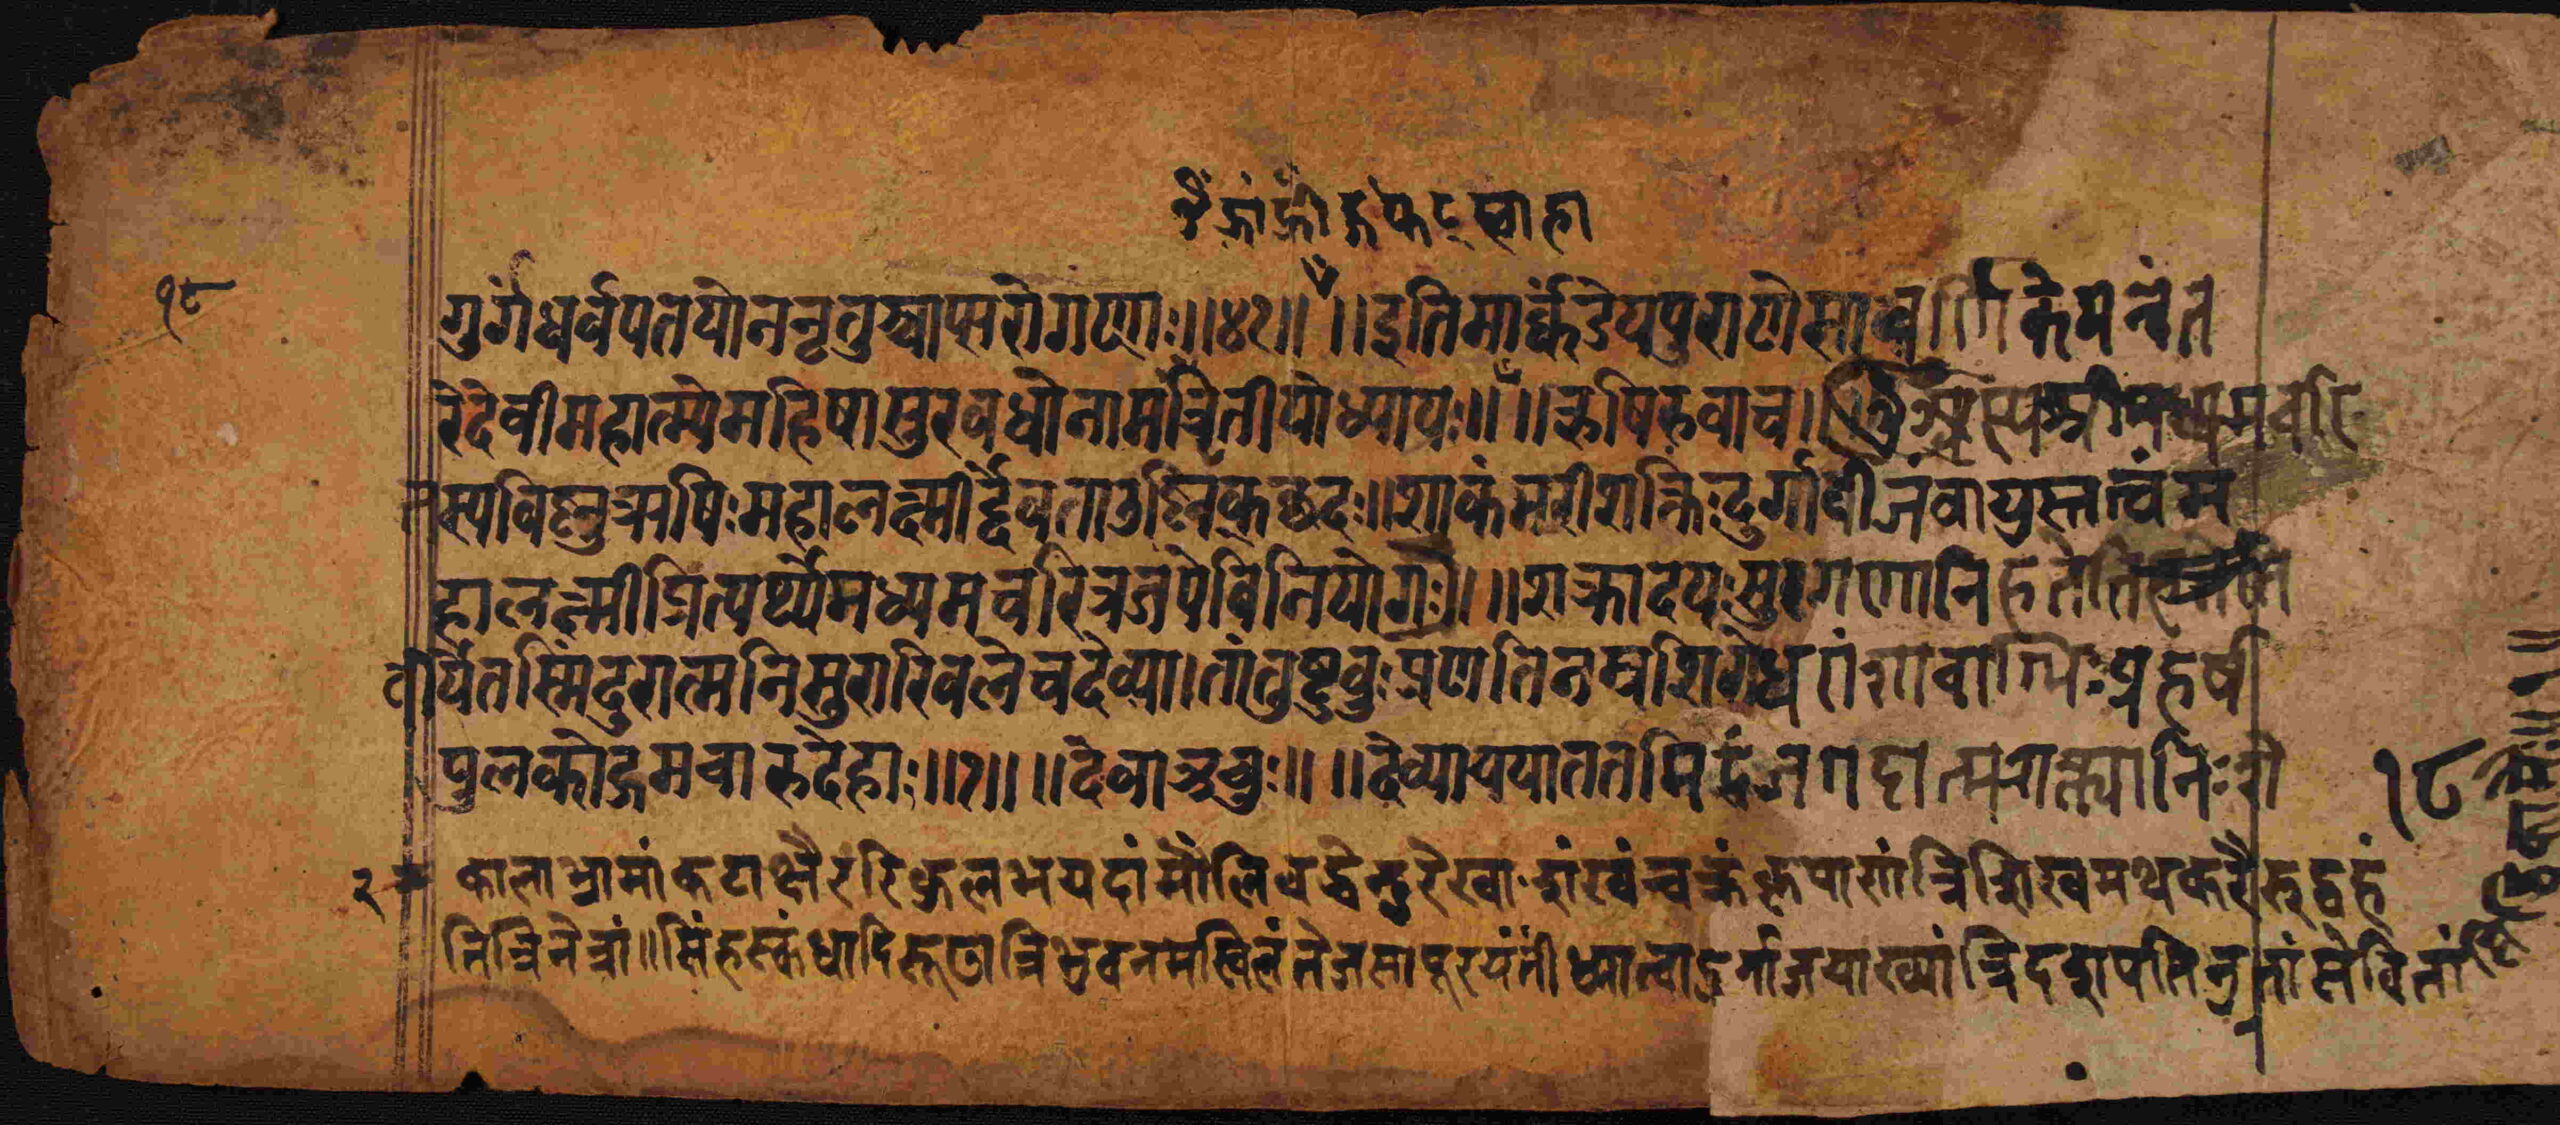 ऐं ह्रां ह्रीं हूं फट् स्वाहा
१८
गुर्गंधर्वपतयोननृतुश्चाप्सरोगणाः॥४१॥ ॥इतिमार्कंडेयपुराणेसावर्णिकेमन्वंत
रेदेवीमहात्म्येमहिषासुरवधोनामत्रितीयोध्यायः॥ ॥ऋषिरुवाच।
स्यविष्नुऋषिःमहालक्ष्मीर्द्देवताउष्निक्छदः॥शाकंभरीशक्तिःदुर्गाबीजंवायुस्तत्वंम
हालक्ष्मीप्रित्यर्थ्येमध्यमचरित्रजपेविनियोगः॥ ॥शक्रादयःसुरगणानिहतेति
वीर्येतस्मिंदुरात्मनिसुरारिवलेचदेव्या।तांतुष्टुवुःप्रणतिनम्रशिरोधरांशावाग्भिःप्रहर्ष
पुलकोद्गमचारुदेहाः॥१॥ ॥देवाऊचुः॥ ॥देव्याययाततमिदंजगदात्मशक्त्यानिःशे
१८
२ कालाभ्रामांकटाक्षैररिकुलभयदांमौलिवद्धेन्दुरेखां शंखंचक्रंकृपाणंत्रिशिखमथकरैरुद्वहं
तित्रिनेत्रां॥सिंहस्कंधादिरूठात्रिभुवनमखिलंतेजसापूरयंतींध्यात्वादुर्गाजयाख्यांत्रिदशपति